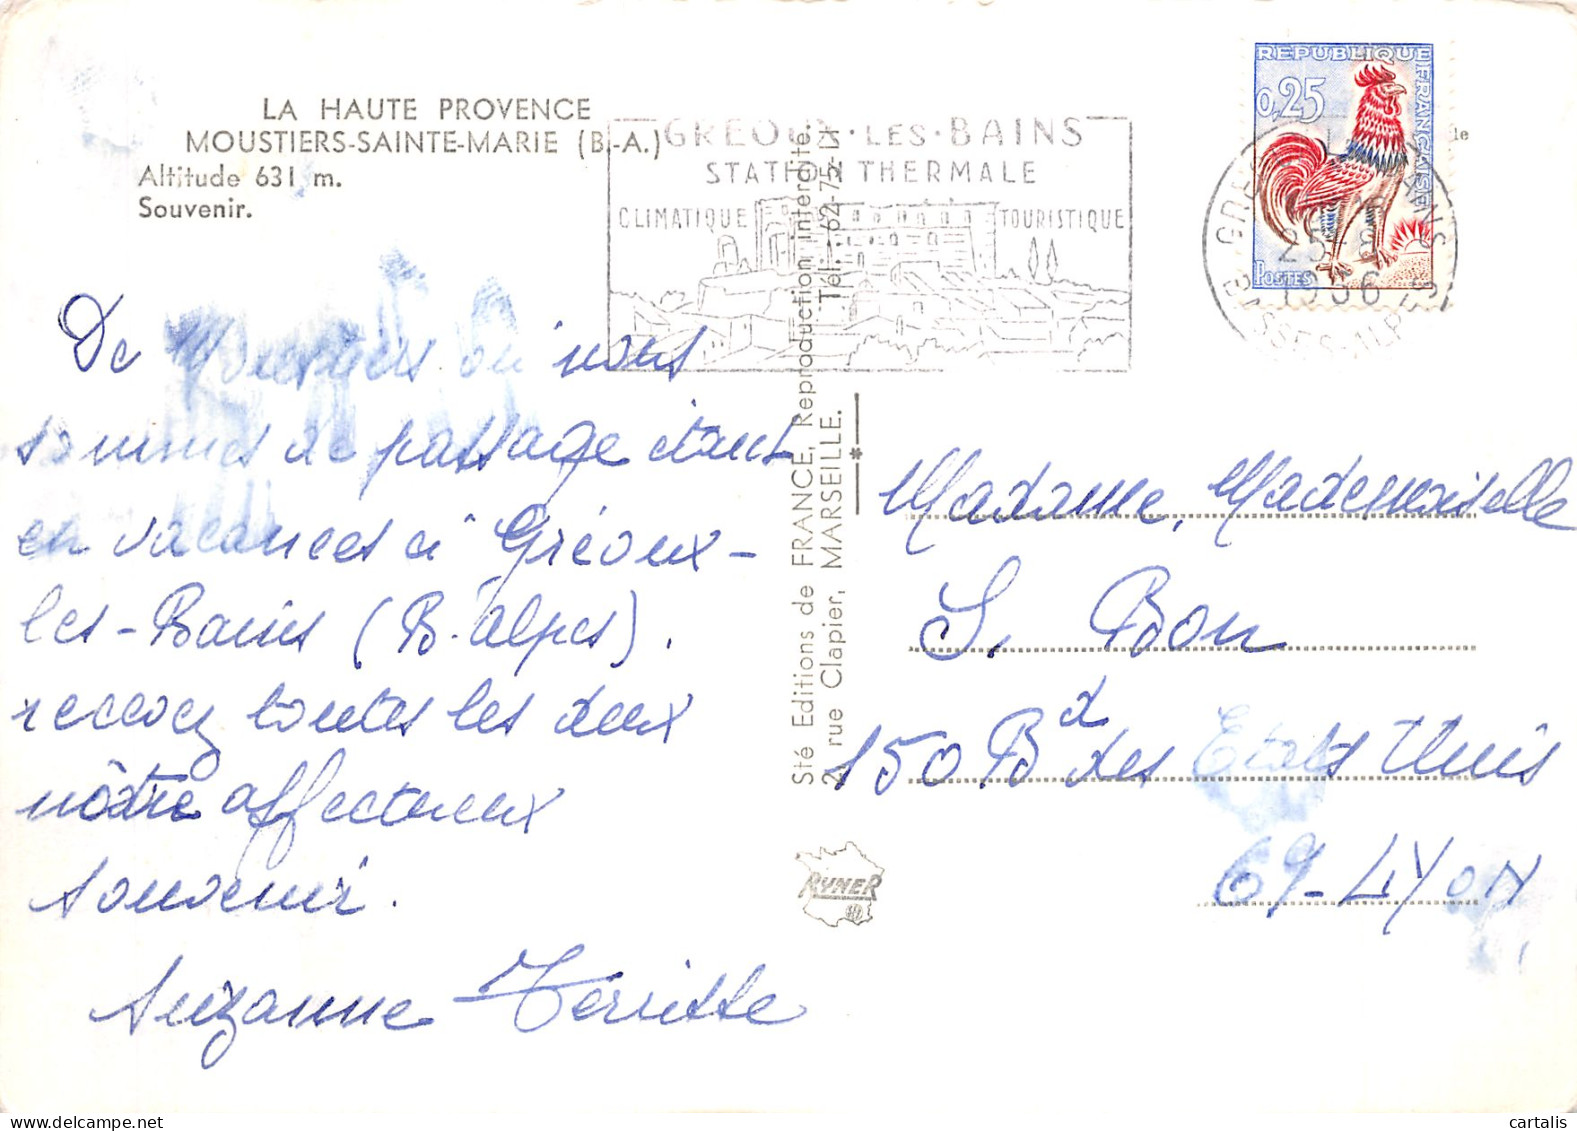 LA HAUTE PROVENCE
MOUSTIERS-SAINTE-MARIE (B.-A.)
Altitude 631 m.
Souvenir.
De Moustiers où nous
sommes de passage étant
en vacances à Gréoux-
les-Bains (B. Alpes).
recevez toutes les deux
nôtre affectueux
souvenir.
Suzanne Terrisse
GREOUX·LES·BAINS
STATION THERMALE
CLIMATIQUE
TOURISTIQUE
Sté Editions de FRANCE, Reproduction interdite.
2, rue Clapier, MARSEILLE. Tél. : 62-75-
RYNER
REPUBLIQUE FRANÇAISE
0,25
POSTES
25
1966
BASSES-ALPES
le
Madame, Mademoiselle
S. Bon
150 Bd des Etats Unis
69-LYON
cartalis
delcampe.net